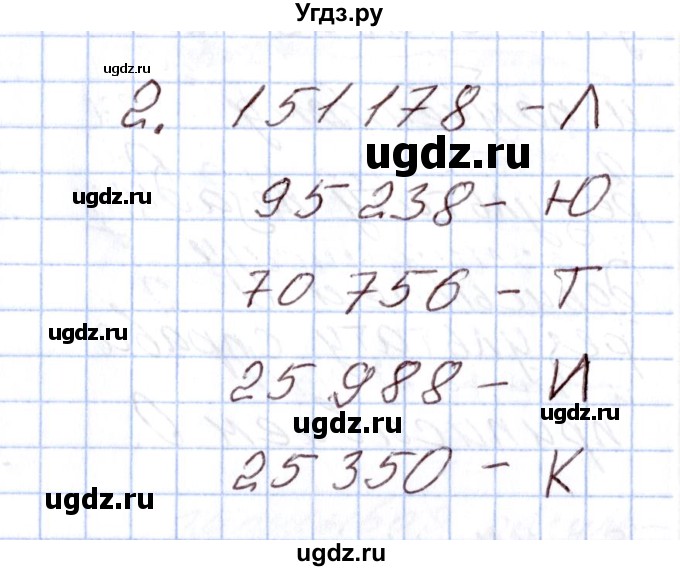 Угдз.ру
ugdz.ru
2. 151 178 - Л
ugdz.ru
ugdz.ru
95 238 - Ю
70 756 - Т
ugdz.ru
25 988 - И
ugdz.ru
ugdz.ru
25 350 - К
ugdz.ru
ugdz.ru